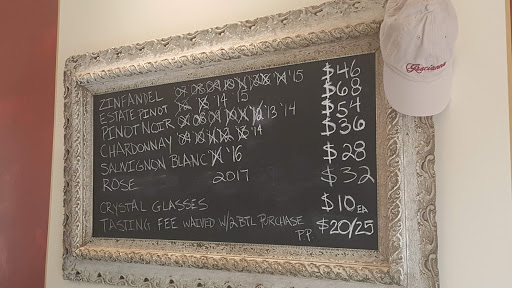 ZINFANDEL 07 08 09 10 11 '12 '13 '14 '15 $46
ESTATE PINOT 12 13 '14 '15 $68
PINOT NOIR 07 08 09 10 11 12 '13 '14 $54
CHARDONNAY 09 10 11 12 13 '14 $36
SAUVIGNON BLANC '16 $28
ROSE 2017 $32
CRYSTAL GLASSES $10 EA
TASTING FEE WAIVED W/2BTL PURCHASE P.P. $20/25
Gracianna